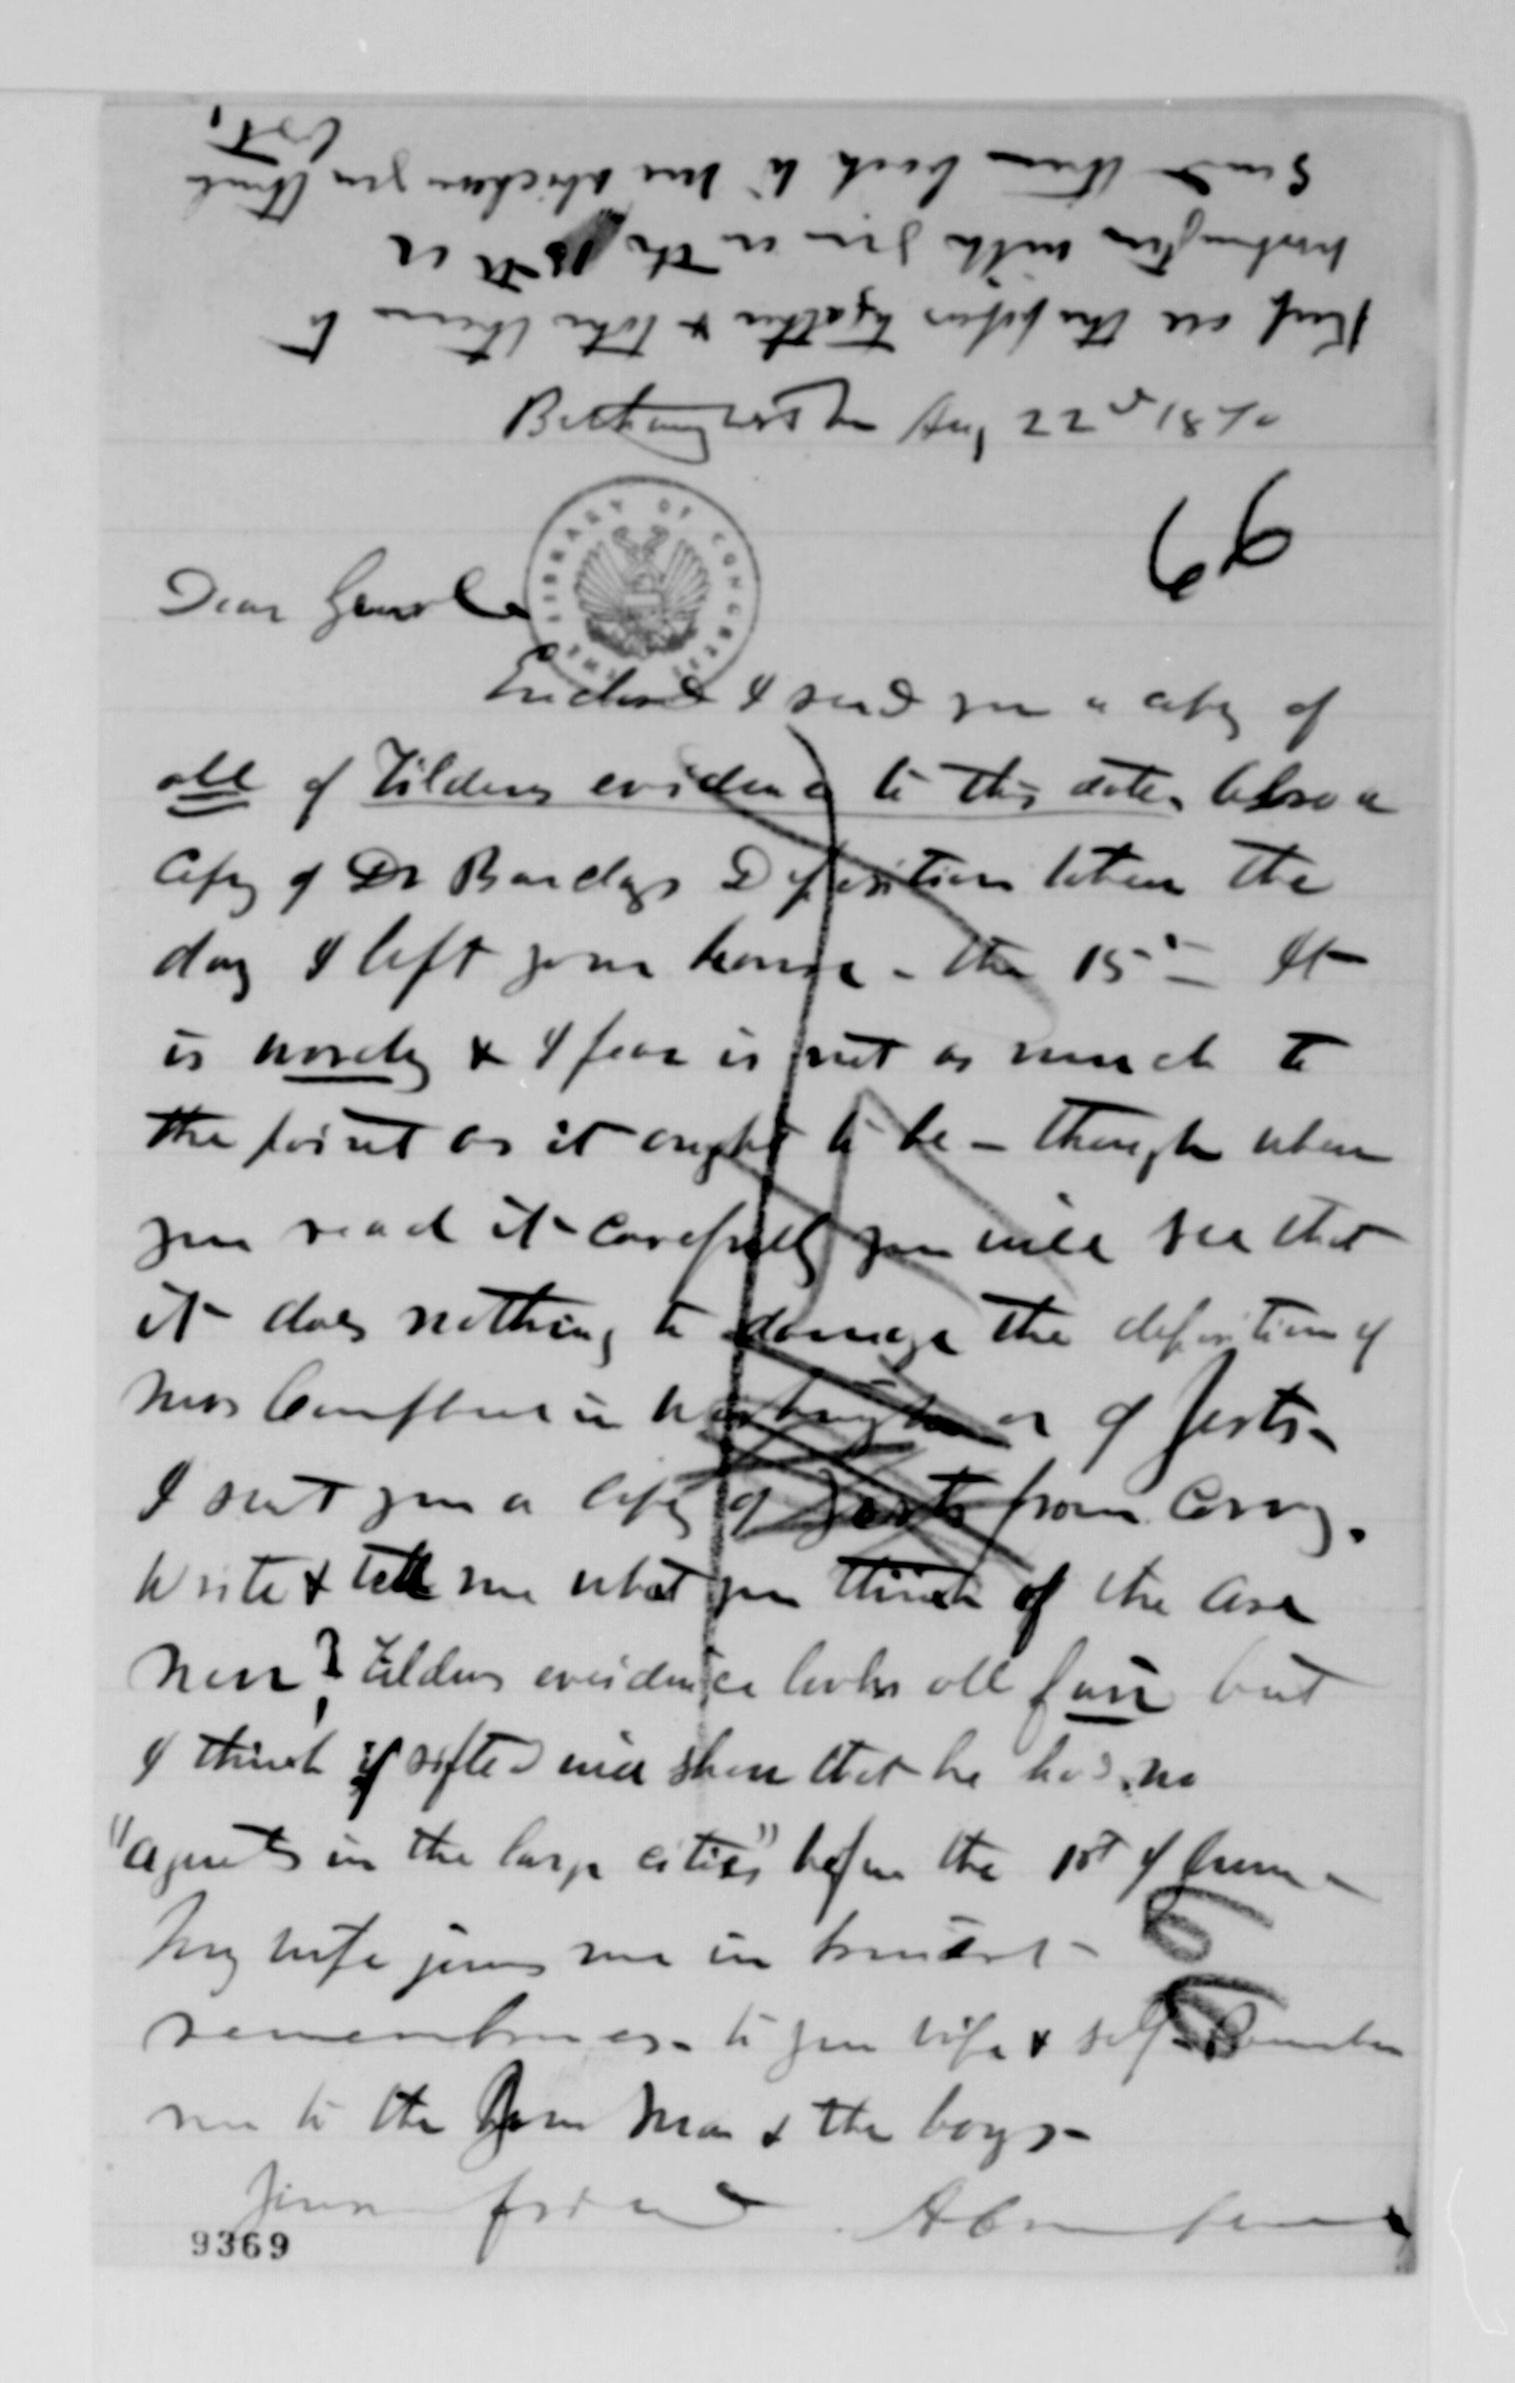 Keep all the papers together & take them to
Washington with you on the 15th or
Send them back to me whichever you think
best.
Aug 22d 1870
66
LIBRARY OF CONGRESS
Dear General
Enclosed I send you a copy of
all of Tildens evidence to this date. Also a
Copy of Dr Barclays Deposition taken the
day I left your house - the 15th It
is wordy & I fear is not as much to
the point as it ought to be - though when
you read it carefully you will see that
it does nothing to damage the deposition of
Mrs in Washington or of
I sent you a copy of from Corry.
Write & tell me what you think of the case
now? Tildens evidence looks all fair but
I think if sifted will show that he had no
"agents in the large cities" before the 1st of June -
My wife joins me in kindest -
remembrances - to your wife & self - Remember
me to the & the boys -
Your friend
9369